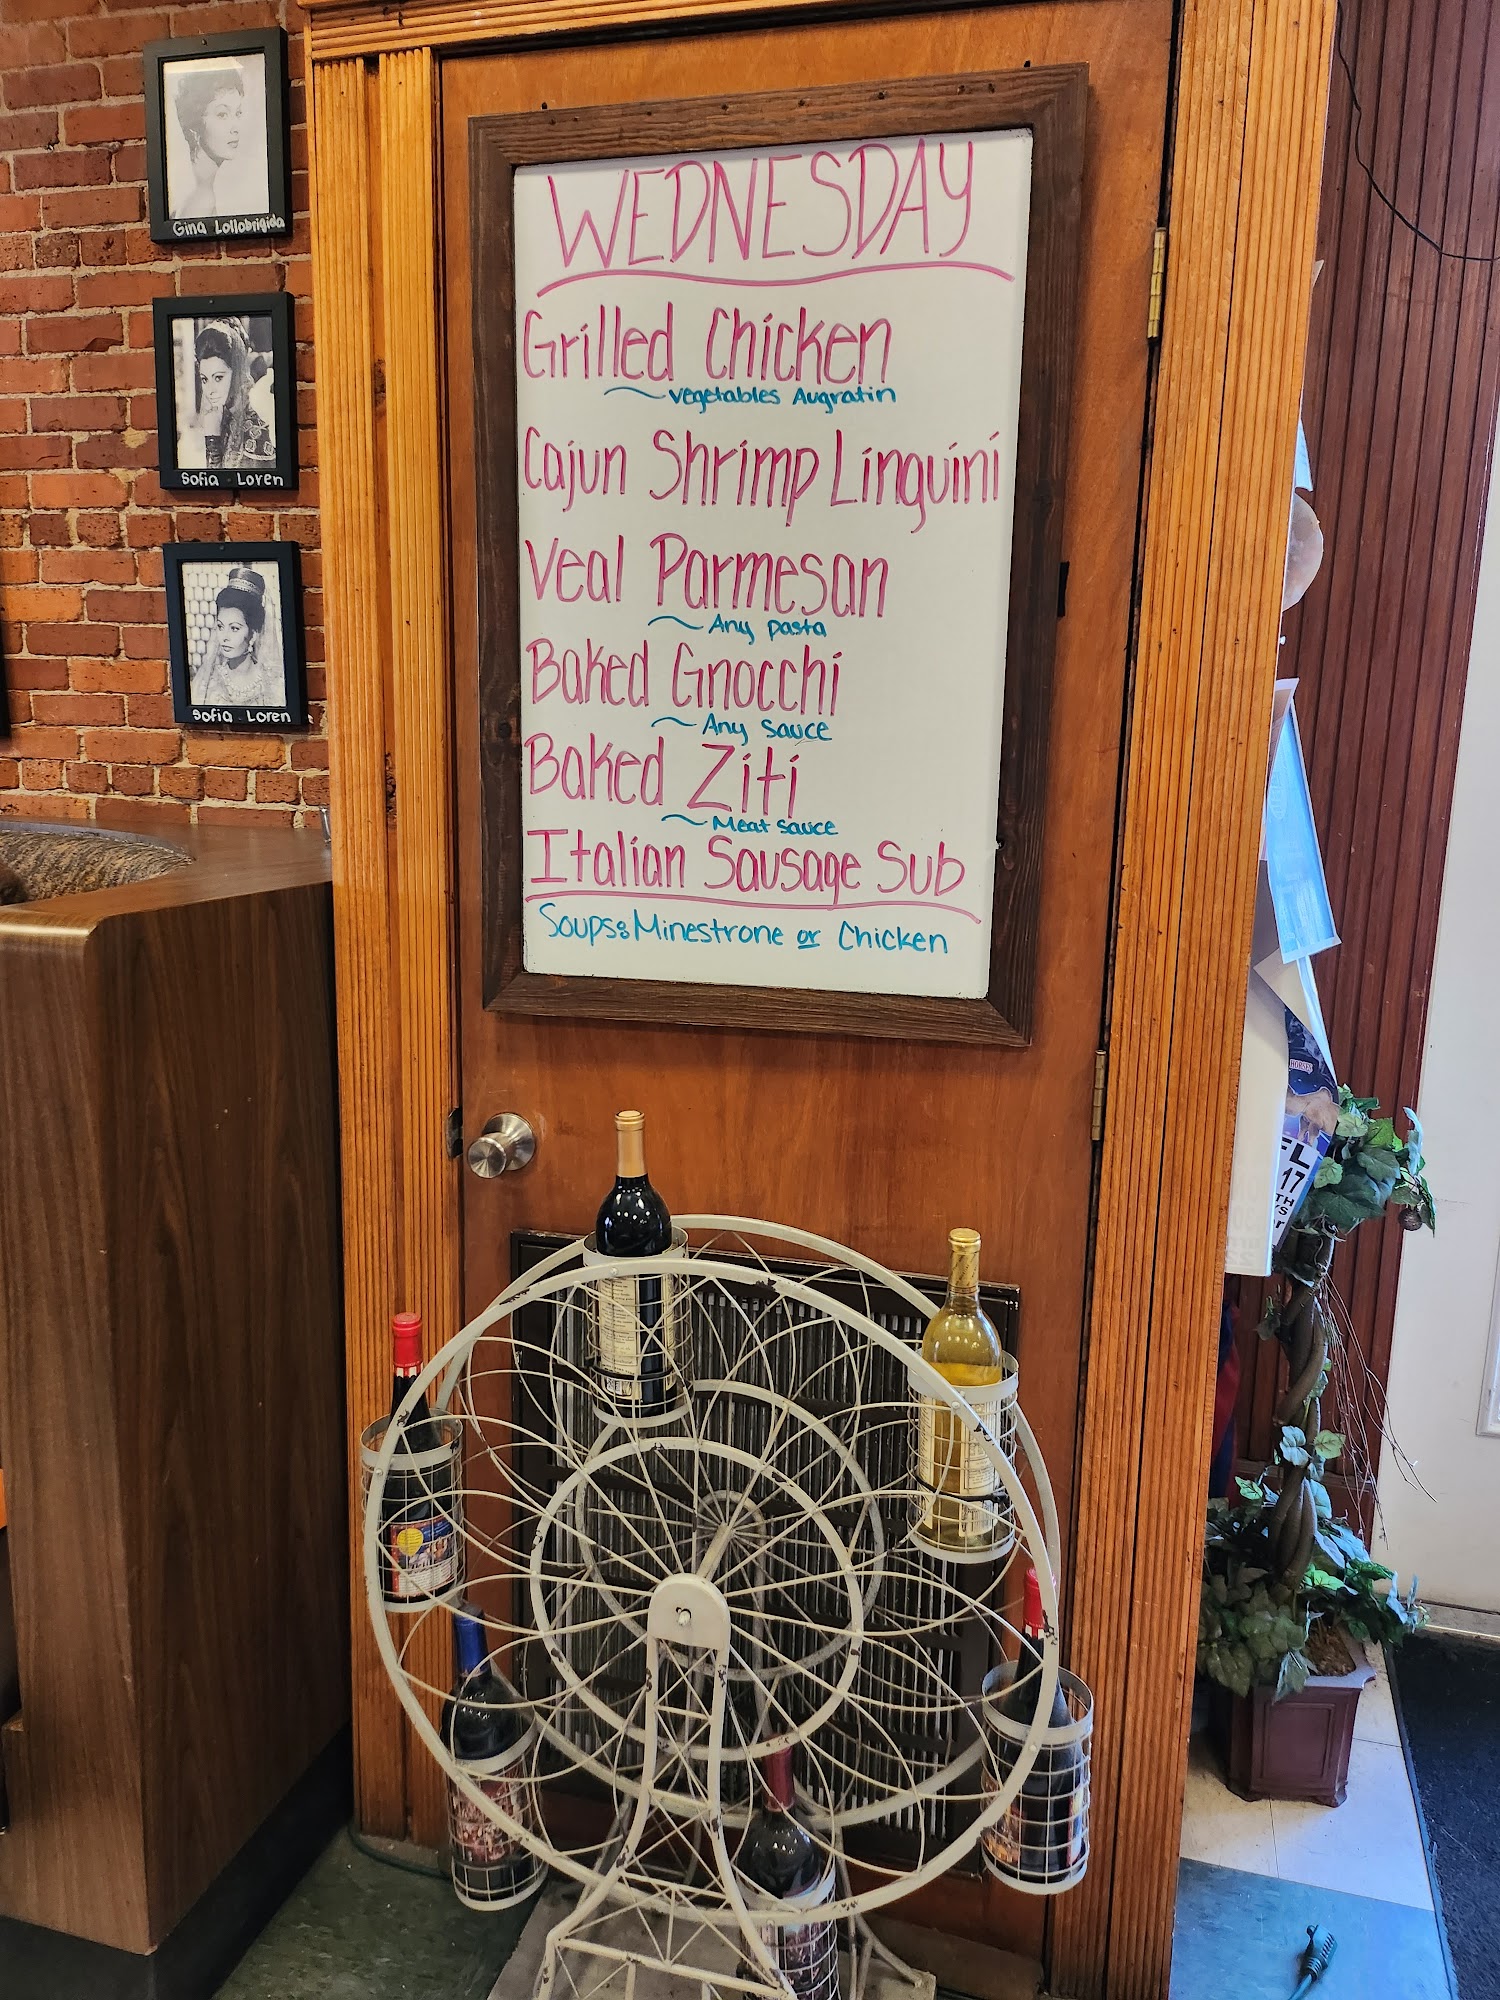 Gina Lollobrigida
Sofia Loren
Sofia Loren
WEDNESDAY
Grilled Chicken
~ Vegetables Augratin
Cajun Shrimp Linguini
Veal Parmesan
~ Any pasta
Baked Gnocchi
~ Any sauce
Baked Ziti
~ Meat sauce
Italian Sausage Sub
Soups: Minestrone or Chicken
FL
17
TH